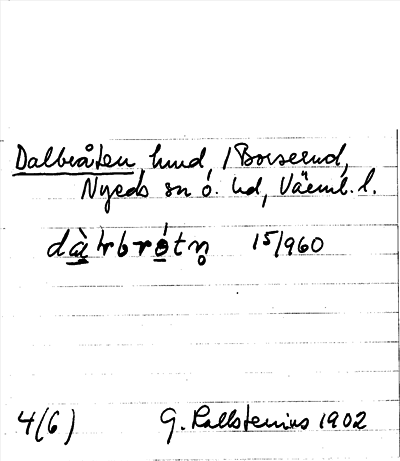 Dalbråten, hmd, /Borserud,
Nyeds sn ö. hd, Värml. l.
dàlrbrótn̥ 15/960
4(6) G. Kallstenius 1902